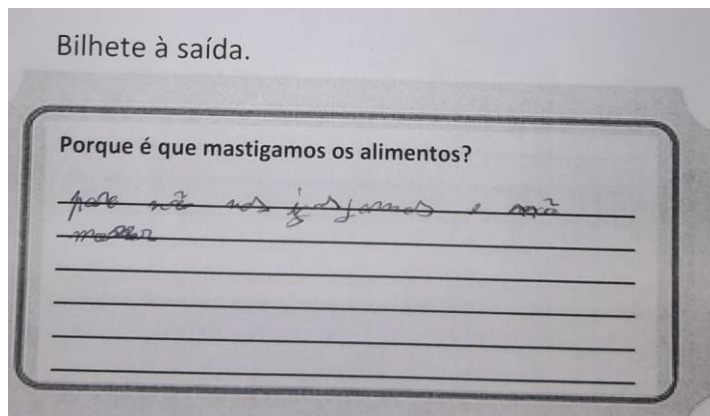 Bilhete à saída.
Porque é que mastigamos os alimentos?
para não nos e não
morrer